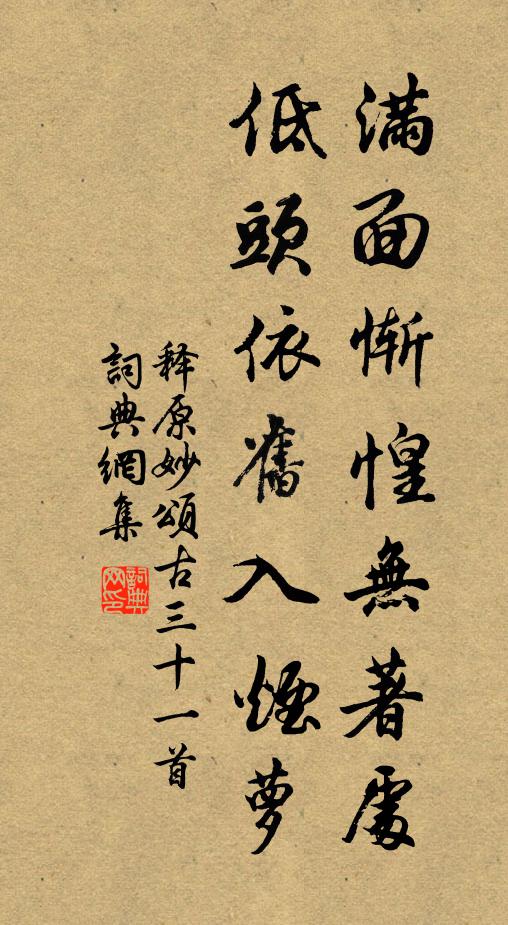 滿面慚惶無著處
低頭依舊入煙萝
释原妙頌古三十一首
詞典網集
詞典
网印